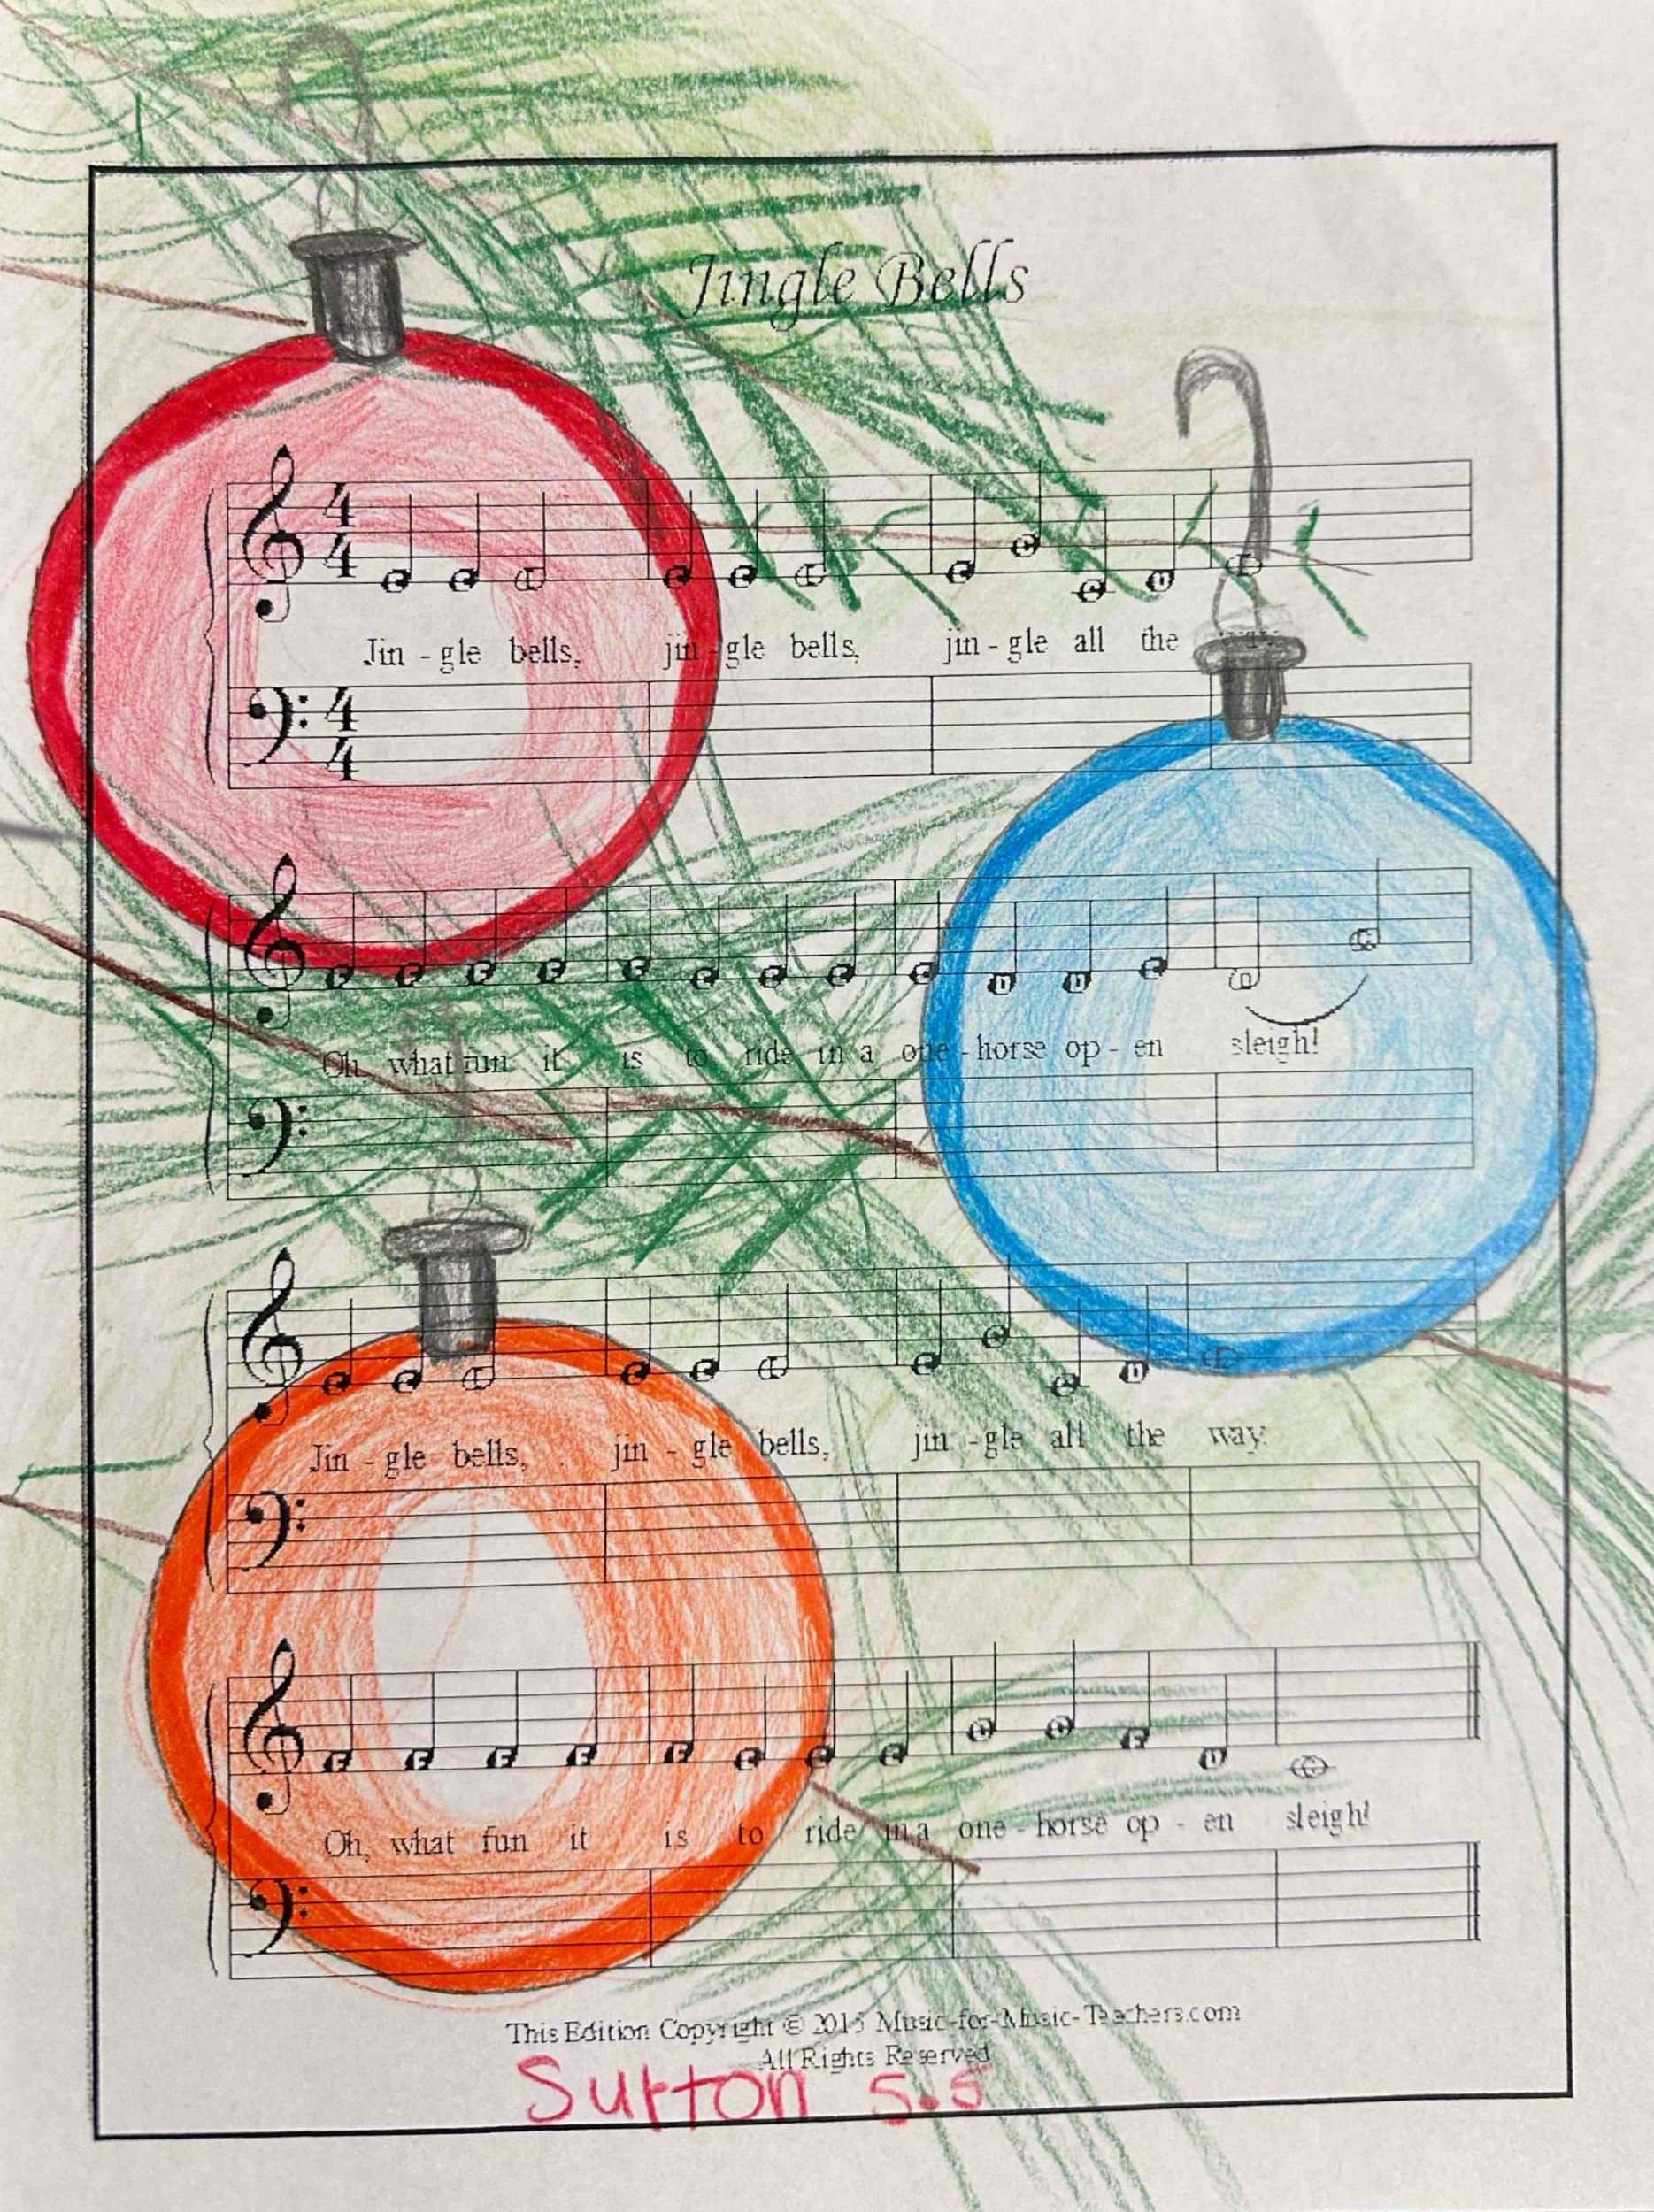 Jingle Bells
Jin - gle bells, jin - gle bells, jin - gle all the
Oh, what fun it is to ride in a one - horse op - en sleigh!
Jin - gle bells, jin - gle bells, jin - gle all the way.
Oh, what fun it is to ride in a one - horse op - en sleigh!
This Edition Copyright © 2015 Music-for-Music-Teachers.com
All Rights Reserved
Sutton 5.5